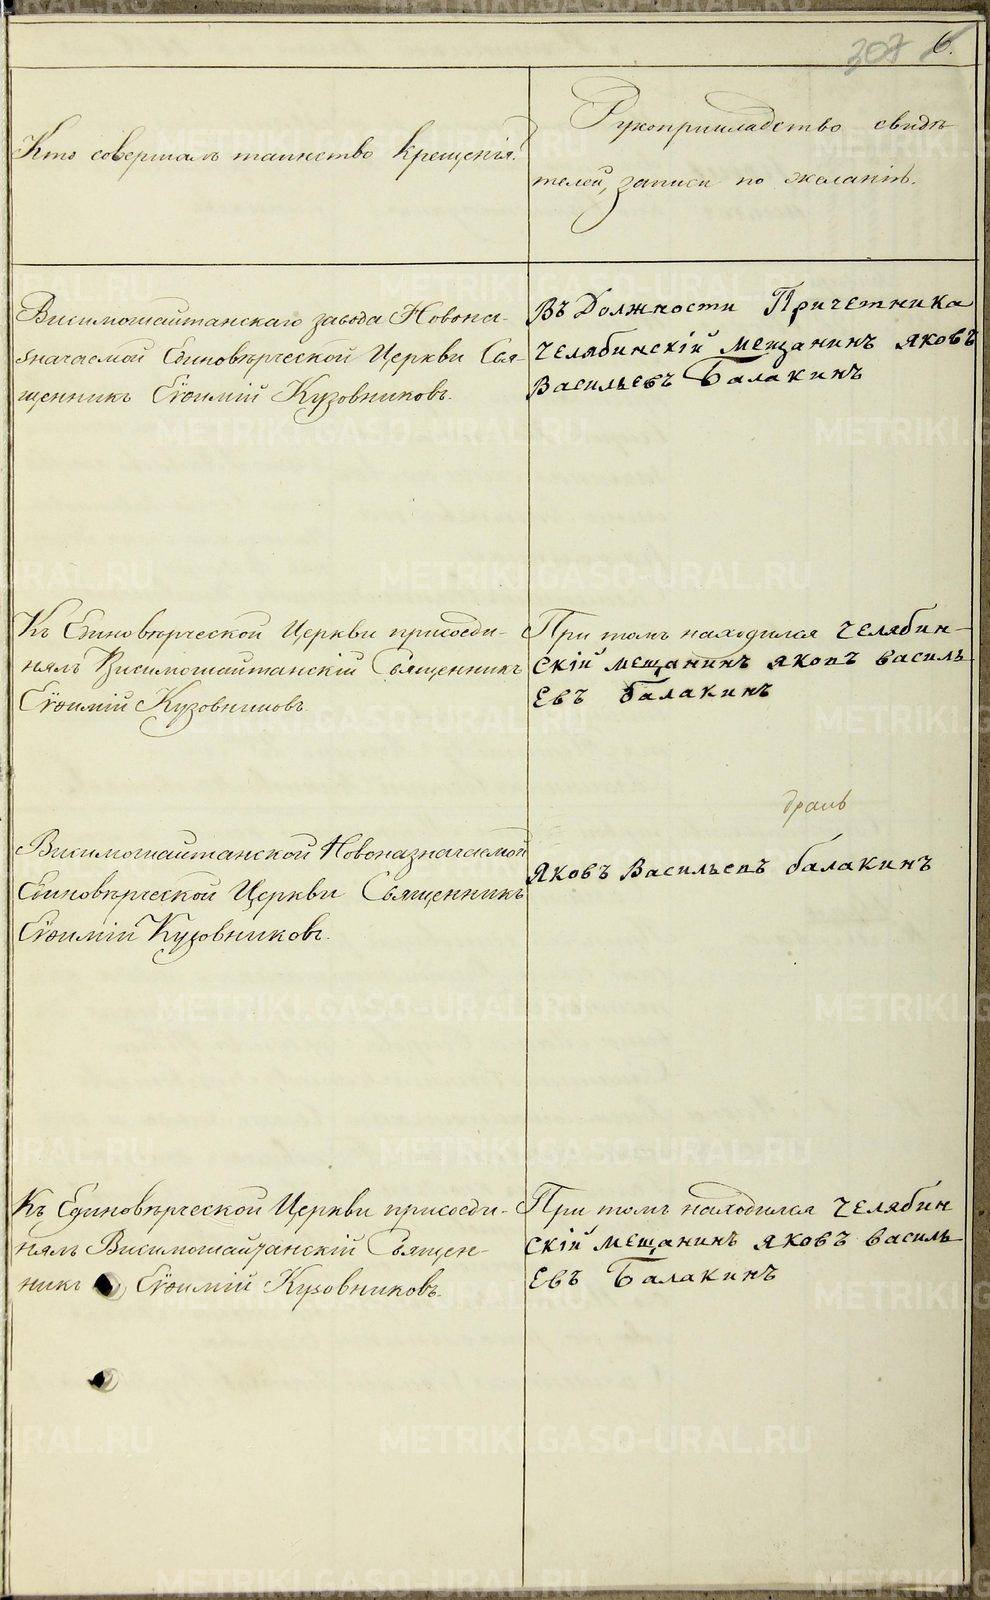 307 6.
Кто совершалъ таинство крещенія.
Рукоприкладство свидѣ-
телей, записи по желанію.
Висимошайтанскаго завода Новона-
значаемой Единовѣрческой Церкви Свя-
щенникъ Еѵѳимій Кузовниковъ.
Въ Должности Причетника
Челябинскій мещанинъ яковъ
Васильевъ Балакинъ
Къ Единовѣрческой Церкви присоеди-
нялъ Висимошайтанскій Священникъ
Еѵѳимій Кузовниковъ
При томъ находился Челябин-
скій мещанинъ яковъ василь
Евъ Балакинъ
Висимошайтанской Новоназначаемой
Единовѣрческой Церкви Священникъ
Еѵѳимій Кузовниковъ.
Яковъ Васильевъ балакинъ
Къ Единовѣрческой Церкви присоеди-
нялъ Висимошайтанскій Священ-
никъ Еѵѳимій Кузовниковъ.
При томъ находился Челябин
скій мещанинъ яковъ василь
Евъ Балакинъ
METRIKI.GASO-URAL.RU